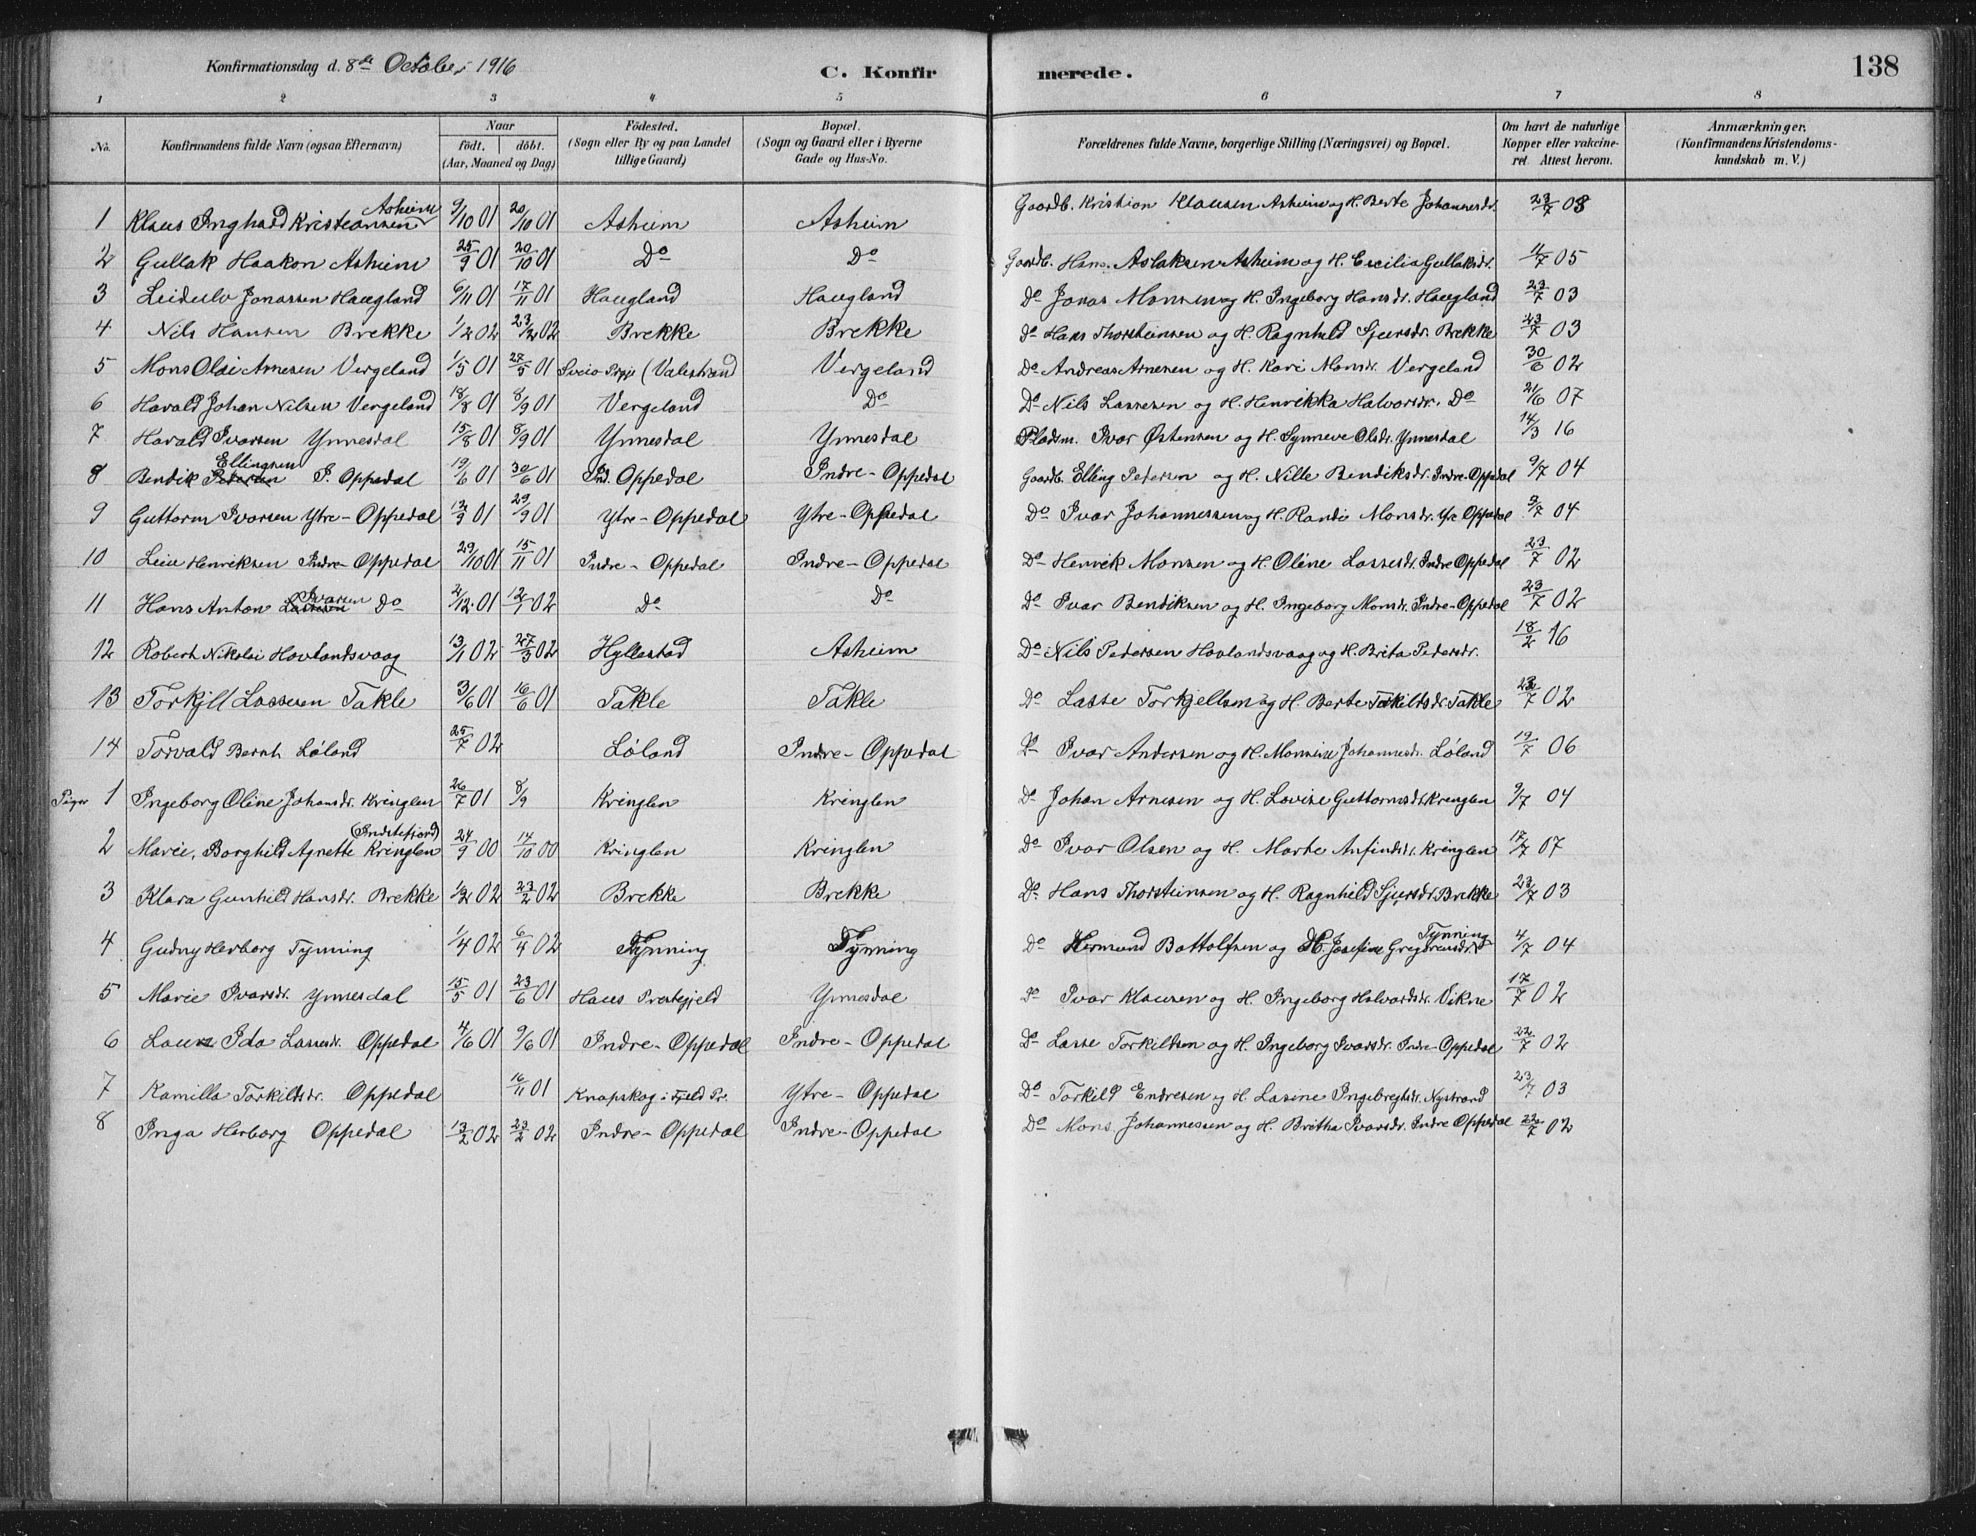 Konfirmationsdag d. 8de October 1916
C. Konfirmerede.
138
1 2 3 4 5 6 7 8
No. Konfirmandens fulde Navn (ogsaa Efternavn) Naar födt. döbt. (Aar, Maaned og Dag) Födested. (Sogn eller By og paa Landet tillige Gaard) Bopæl. (Sogn og Gaard eller i Byerne Gade og Hus-No. Forældrenes fulde Navne, borgerlige Stilling (Næringsvei) og Bopæl. Om havt de naturlige Kopper eller vakcineret. Attest herom. Anmærkninger. (Konfirmandens Kristendomskundskab m. V.)
1 Klaus Inghald Kristiansen Asheim 9/10 01 20/10 01 Asheim Asheim Gaardb. Kristian Klausen Asheim og H. Berte Johannesdr. 23/7 03
2 Gullak Haakon Asheim 25/9 01 20/10 01 Do Do Gaardb. Hans Aslaksen Asheim og H. Cecilia Gullaksdr. 11/7 05
3 Leidulv Jonassen Haugland 6/11 01 17/11 01 Haugland Haugland Do Jonas Monsen og H. Ingeborg Hansdr. Haugland 23/7 03
4 Nils Hansen Brekke 1/2 02 23/2 02 Brekke Brekke Do Hans Thorsteinsen og H. Ragnhild Sjursdr. Brekke 23/7 03
5 Mons Olai Arnesen Vergeland 1/5 01 27/5 01 Sveio Prgj (Valestrand Vergeland Do Andreas Arnesen og H. Kari Monsdr. Vergeland 30/6 02
6 Harald Johan Nilsen Vergeland 18/8 01 8/9 01 Vergeland Do Do Nils Lassesen og H. Henrikka Halvorsdr. Do 21/6 07
7 Harald Ivarsen Ynnesdal 15/8 01 8/9 01 Ynnesdal Ynnesdal Pladsm. Ivar Østensen og H. Synneve Olsdr. Ynnesdal 14/3 16
8 Bendik Pedersen Ellingsen I. Oppedal 19/6 01 30/6 01 Ind. Oppedal Indre-Oppedal Gaardb. Elling Petersen og H. Nille Bendiksdr. Indre-Oppedal 9/7 04
9 Guttorm Ivarsen Ytre-Oppedal 12/9 01 29/9 01 Ytre-Oppedal Ytre-Oppedal Do Ivar Johannessen og H. Randi Monsdr. Ytre Oppedal 9/7 04
10 Leiu Henriksen Indre-Oppedal 29/10 01 15/11 01 Indre-Oppedal Indre-Oppedal Do Henrik Monsen og H. Oline Lassesdr. Indre Oppedal 23/7 02
11 Hans Anton Lassesen Ivarsen Do 2/12 01 12/1 02 Do Do Do Ivar Bendiksen og H. Ingeborg Monsdr. Indre-Oppedal 23/7 02
12 Robert Nikolai Hovlandsvaag 13/1 02 27/3 02 Hyllestad Asheim Do Nils Pedersen Hovlandsvaag og H. Brita Pedersdr. 18/2 16
13 Torkjell Lassesen Takle 3/6 01 16/6 01 Takle Takle Do Lasse Torkjellsen og H. Berte Torkildsdr. Takle 23/7 02
14 Torvald Bernh. Løland 25/7 02 Løland Indre-Oppedal Do Ivar Andersen og H. Monsine Johannesdr. Løland 19/7 06
Piger 1 Ingeborg Oline Johansdr. Kringlen 26/7 01 8/9 Kringlen Kringlen Do Johan Arnesen og H. Lovise Guttormsdr. Kringlen 9/7 04
2 Marie, Borghild Agnette Kringlen (Indrefjord) 24/9 00 14/10 00 Kringlen Kringlen Do Ivar Olsen og H. Marte Anfindsdr. Kringlen 17/7 07
3 Klara Gunhild Hansdr. Brekke 1/2 02 23/2 02 Brekke Brekke Do Hans Thorsteinsen og H. Ragnhild Sjursdr. Brekke 23/7 03
4 Gudny Herborg Tynning 1/4 02 6/4 02 Tynning Tynning Do Hermund Bottolfsen og H. Josefine Gregoriusdr. Tynning 4/7 04
5 Marie Ivarsdr. Ynnesdal 15/5 01 23/6 01 Haus Prestegjeld Ynnesdal Do Ivar Klausen og H. Ingeborg Halvardsdr. Vikne 17/7 02
6 Ida Lassesdr. Oppedal 4/6 01 9/6 01 Indre-Oppedal Indre-Oppedal Do Lasse Torkildsen og H. Ingeborg Ivarsdr. Indre-Oppedal 22/7 02
7 Kamilla Torkildsdr. Oppedal 16/11 01 Knapskog i Fjeld Pr. Ytre-Oppedal Do Torkild Endresen og H. Lasine Ingebregtsdr. Nystrand 23/7 03
8 Inga Herborg Oppedal 13/2 02 23/2 02 Indre-Oppedal Indre-Oppedal Do Mons Johannessen og H. Britha Ivarsdr. Indre Oppedal 22/7 02